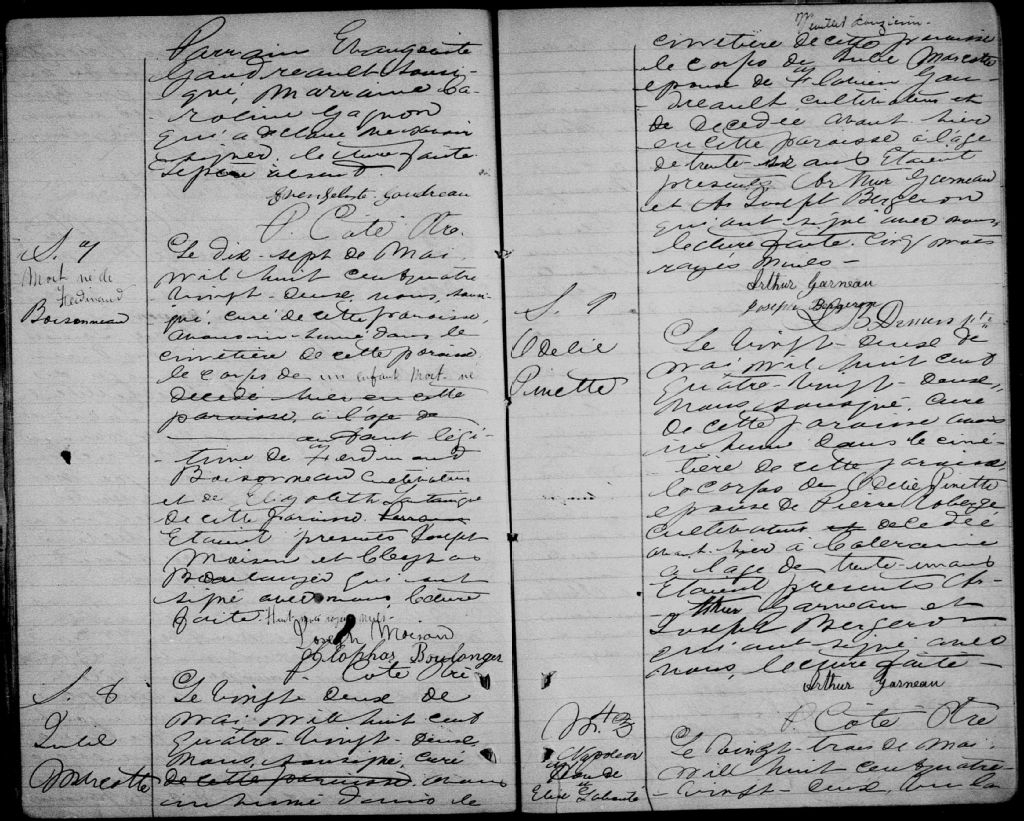 Parrain Evangeliste
Gaudreault soussi-
gné, Marraine Ca-
roline Gagnon
qui a déclaré ne savoir
signer. lecture faite.
le père absent.
Evangeliste Gaudreau
P. Côté Ptre.
S. 7
Mort né de
Ferdinand
Boisonneau
Le dix-sept de Mai
mil huit cent quatre
vingt-deux, nous, soussi-
gné, curé de cette paroisse,
avons inhumé dans le
cimetière de cette paroisse
le corps de un enfant mort-né
decedé hier en cette
paroisse, à l'age de
enfant légi-
time de Ferdinand
Boisonneau Cultivateur
et de Elizabeth
de cette paroisse.
Etaient presents Joseph
Moison et Cleophas
Boulanger qui ont
signé avec nous, lecture
faite. Huit mots rayés nuls.
Joseph Moison
Clophas Boulanger
P. Côté Ptre
S. 8
Julie
Marcotte
Le vingt deux de
Mai mil huit cent
quatre-vingt-deux,
Nous, soussigné, curé
de cette paroisse, avons
inhumé dans le
cimetière de cette paroisse
le corps de Julie Marcotte
épouse de Flavien Gau-
dreault, cultivateur et
de decedée avant-hier
en cette paroisse à l'âge
de trente-six ans Etaient
presents Arthur Garneau
et Joseph Bergeron
qui ont signé avec nous,
lecture faite. Cinq mots
rayés nuls-
Arthur Garneau
Joseph Bergeron
S. 9
Odelie
Pinette
Le vingt-deux de
Mai mil huit cent
quatre-vingt-deux,
Nous, soussigné, curé
de cette paroisse avons
inhumé dans le cime-
tière de cette paroisse,
le corps de Odelie Pinette
épouse de Pierre Roberge
cultivateur et decedée
avant hier à
a l'age de trente-un ans
Etaient presents Ar-
thur Garneau et
Joseph Bergeron
qui ont signé avec
nous, lecture faite-
Arthur Garneau
P. Côté Ptre
M. 3
Napoleon
de
Elise
Le vingt-trois de Mai
mil huit cent quatre-
vingt-deux, vu la